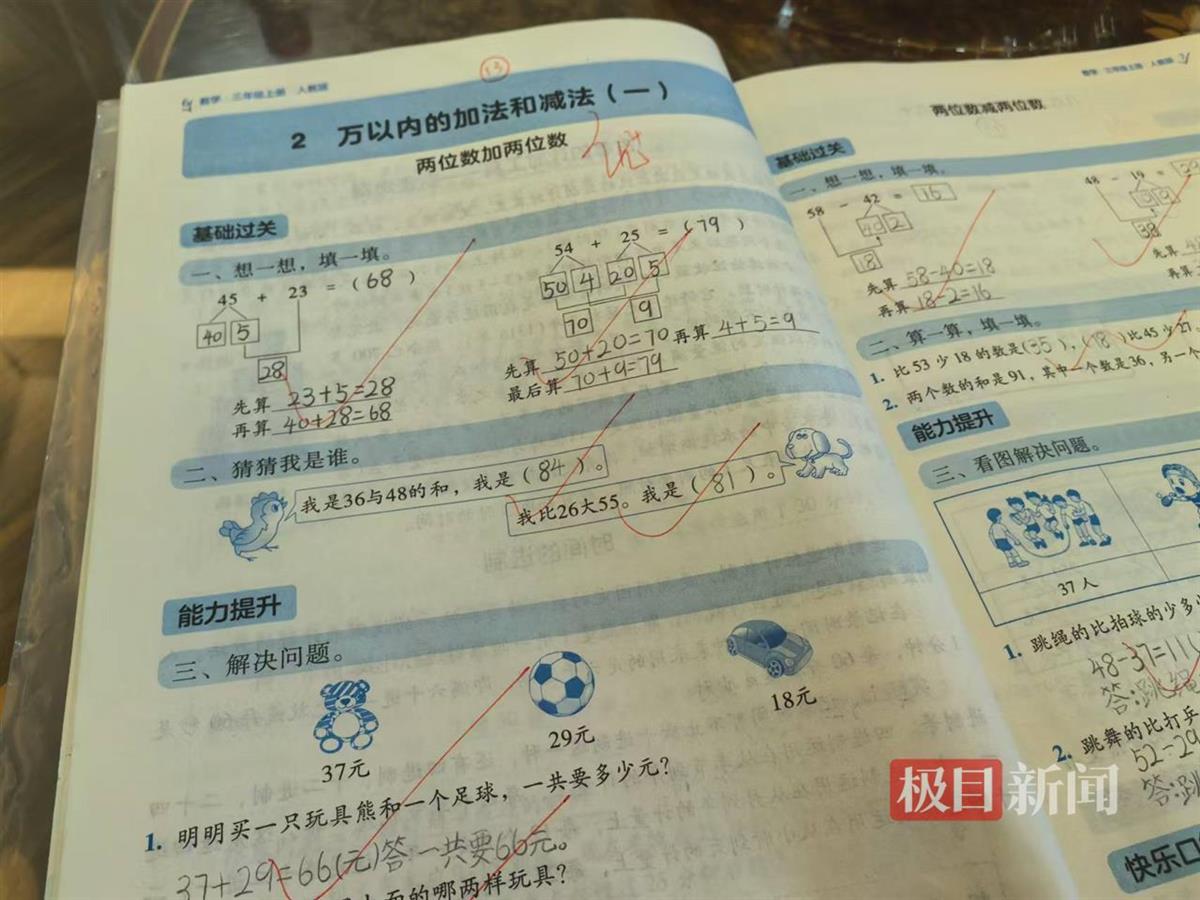 数学·三年级上册 人教版
13
2 万以内的加法和减法（一）
两位数加两位数
基础过关
一、想一想，填一填。
45 + 23 = (68)
40 5
28
先算 23+5=28
再算 40+28=68
54 + 25 = (79)
50 4 20 5
70 9
先算 50+20=70 再算 4+5=9
最后算 70+9=79
二、猜猜我是谁。
我是36与48的和，我是（84）。
我比26大55。我是（81）。
能力提升
三、解决问题。
37元
29元
18元
1. 明明买一只玩具熊和一个足球，一共要多少元？
37+29=66(元)答:一共要66元。
上面的哪两样玩具？
数学·三年级上册 人教版
两位数减两位数
基础过关
一、想一想，填一填。
58 - 42 = 16
40 2
18
先算 58-40=18
再算 18-2=16
48 - 19 =
9
38
先算
再算
二、算一算，填一填。
1. 比53少18的数是(35)，(18)比45少27。
2. 两个数的和是91，其中一个数是36，另一个
能力提升
三、看图解决问题。
37人
1. 跳绳的比拍球的少多少
48-37=11(
答:跳绳
2. 跳舞的比打乒
52-29
答:跳
快乐口
极目新闻